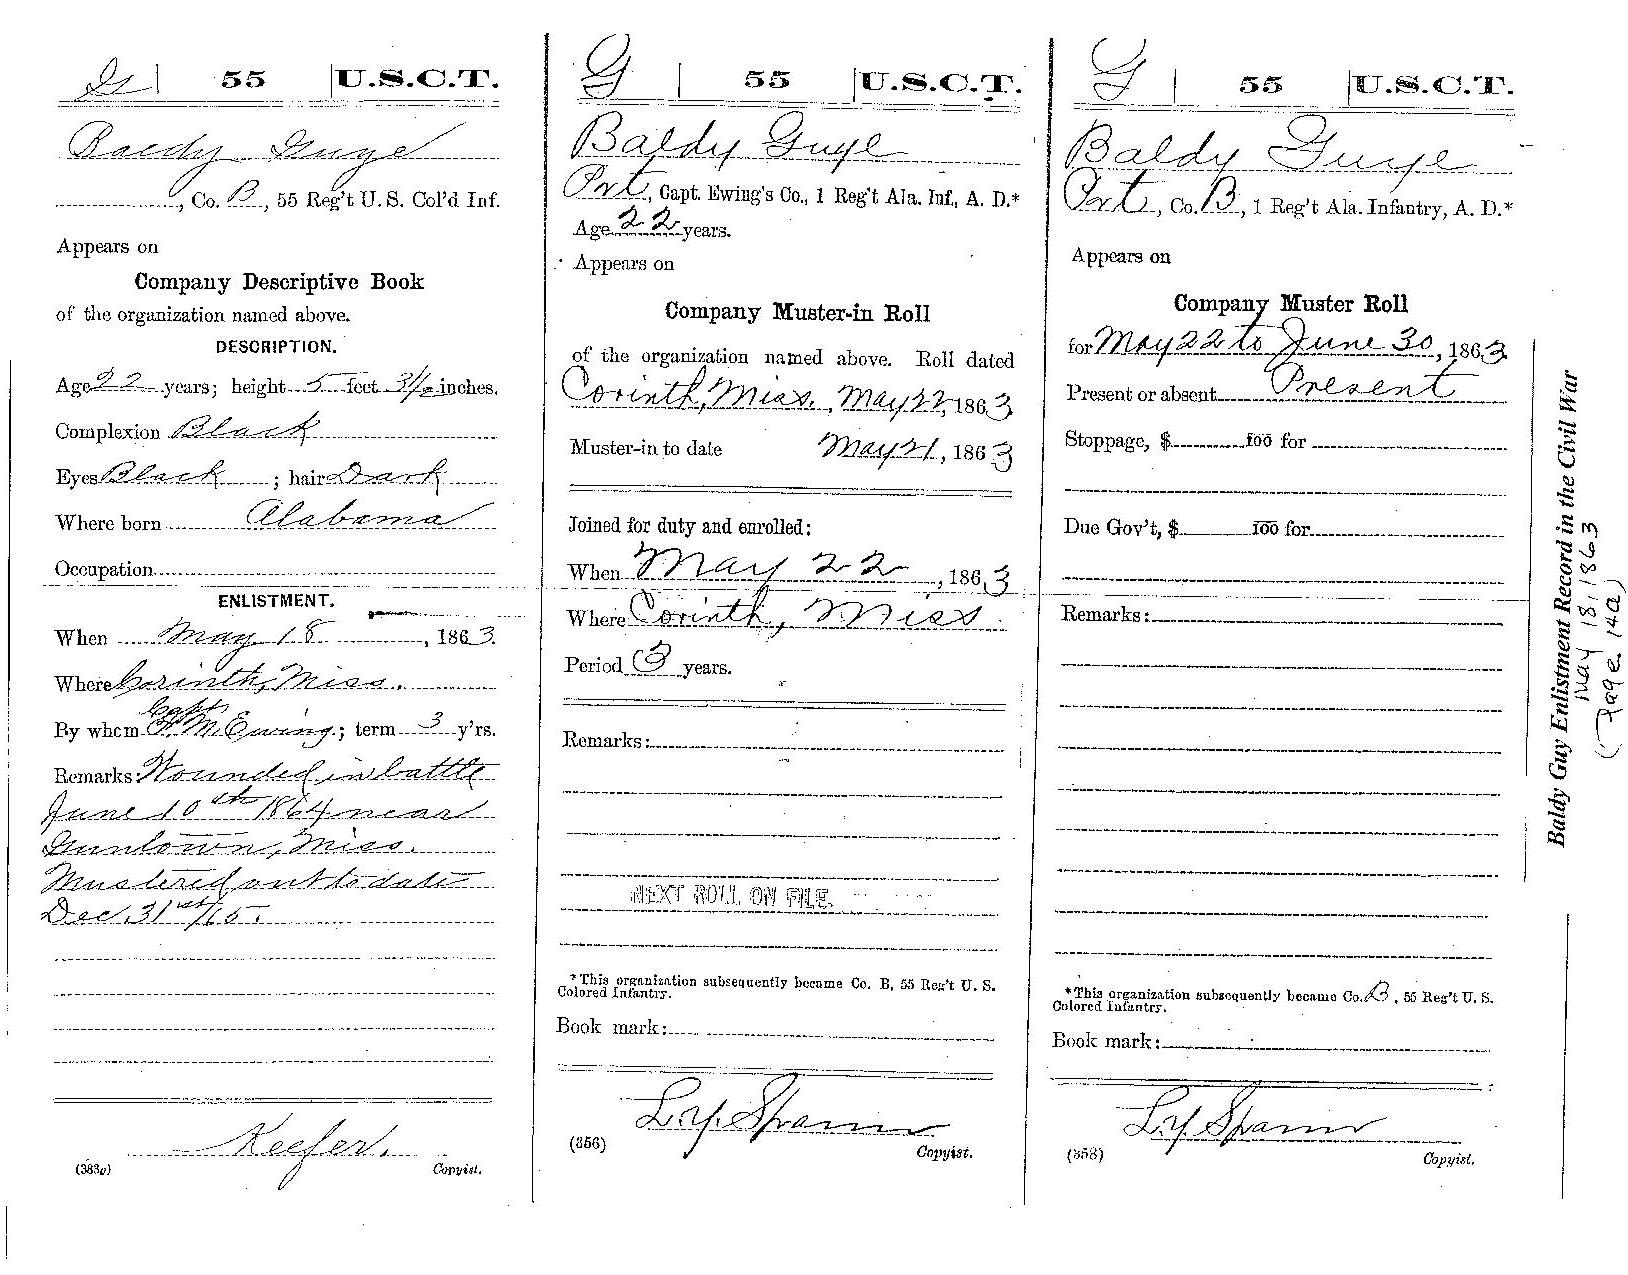 G | 55 | U.S.C.T.
Baldy Guye
, Co. B, 55 Reg't U. S. Col'd Inf.
Appears on
Company Descriptive Book
of the organization named above.
DESCRIPTION.
Age 22 years; height 5 feet 3½ inches.
Complexion Black
Eyes Black ; hair Dark
Where born Alabama
Occupation
ENLISTMENT.
When May 18, 1863.
Where Corinth, Miss.
Capt
By whom F. M. Ewing; term 3 y'rs.
Remarks: Wounded in battle
June 10th 1864 near
Guntown, Miss.
Mustered out to date
Dec. 31st/65.
Keefer.
(383g) Copyist.
G | 55 | U.S.C.T.
Baldy Guye
Pvt, Capt. Ewing's Co., 1 Reg't Ala. Inf., A. D.*
Age 22 years.
Appears on
Company Muster-in Roll
of the organization named above. Roll dated
Corinth, Miss., May 22, 1863
Muster-in to date May 21, 1863
Joined for duty and enrolled:
When May 22, 1863
Where Corinth, Miss.
Period 3 years.
Remarks:
NEXT ROLL ON FILE.
*This organization subsequently became Co. B, 55 Reg't U. S.
Colored Infantry.
Book mark:
L. Y. Spann
(356) Copyist.
G | 55 | U.S.C.T.
Baldy Guye
Pvt, Co. B, 1 Reg't Ala. Infantry, A. D.*
Appears on
Company Muster Roll
for May 22 to June 30, 1863
Present or absent Present
Stoppage, $ 100 for
Due Gov't, $ 100 for
Remarks:
*This organization subsequently became Co. B, 55 Reg't U. S.
Colored Infantry.
Book mark:
L. Y. Spann
(358) Copyist.
Baldy Guy Enlistment Record in the Civil War
May 18, 1863
(Page 14a)